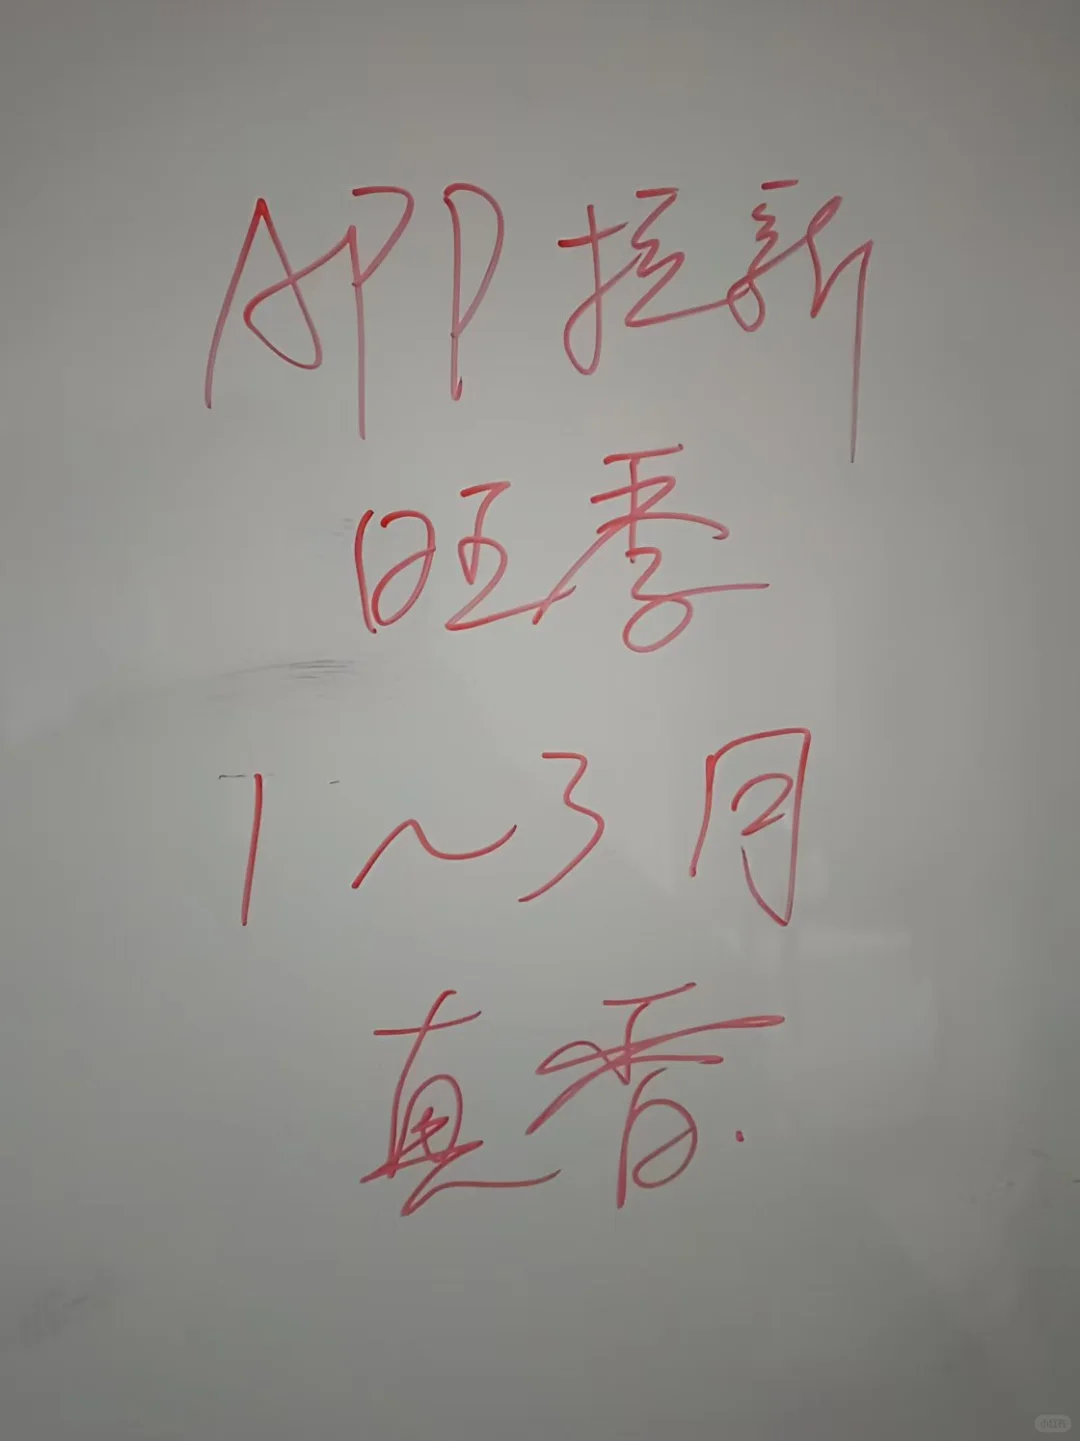 APP拉新
旺季
1~3月
真香.
小红书